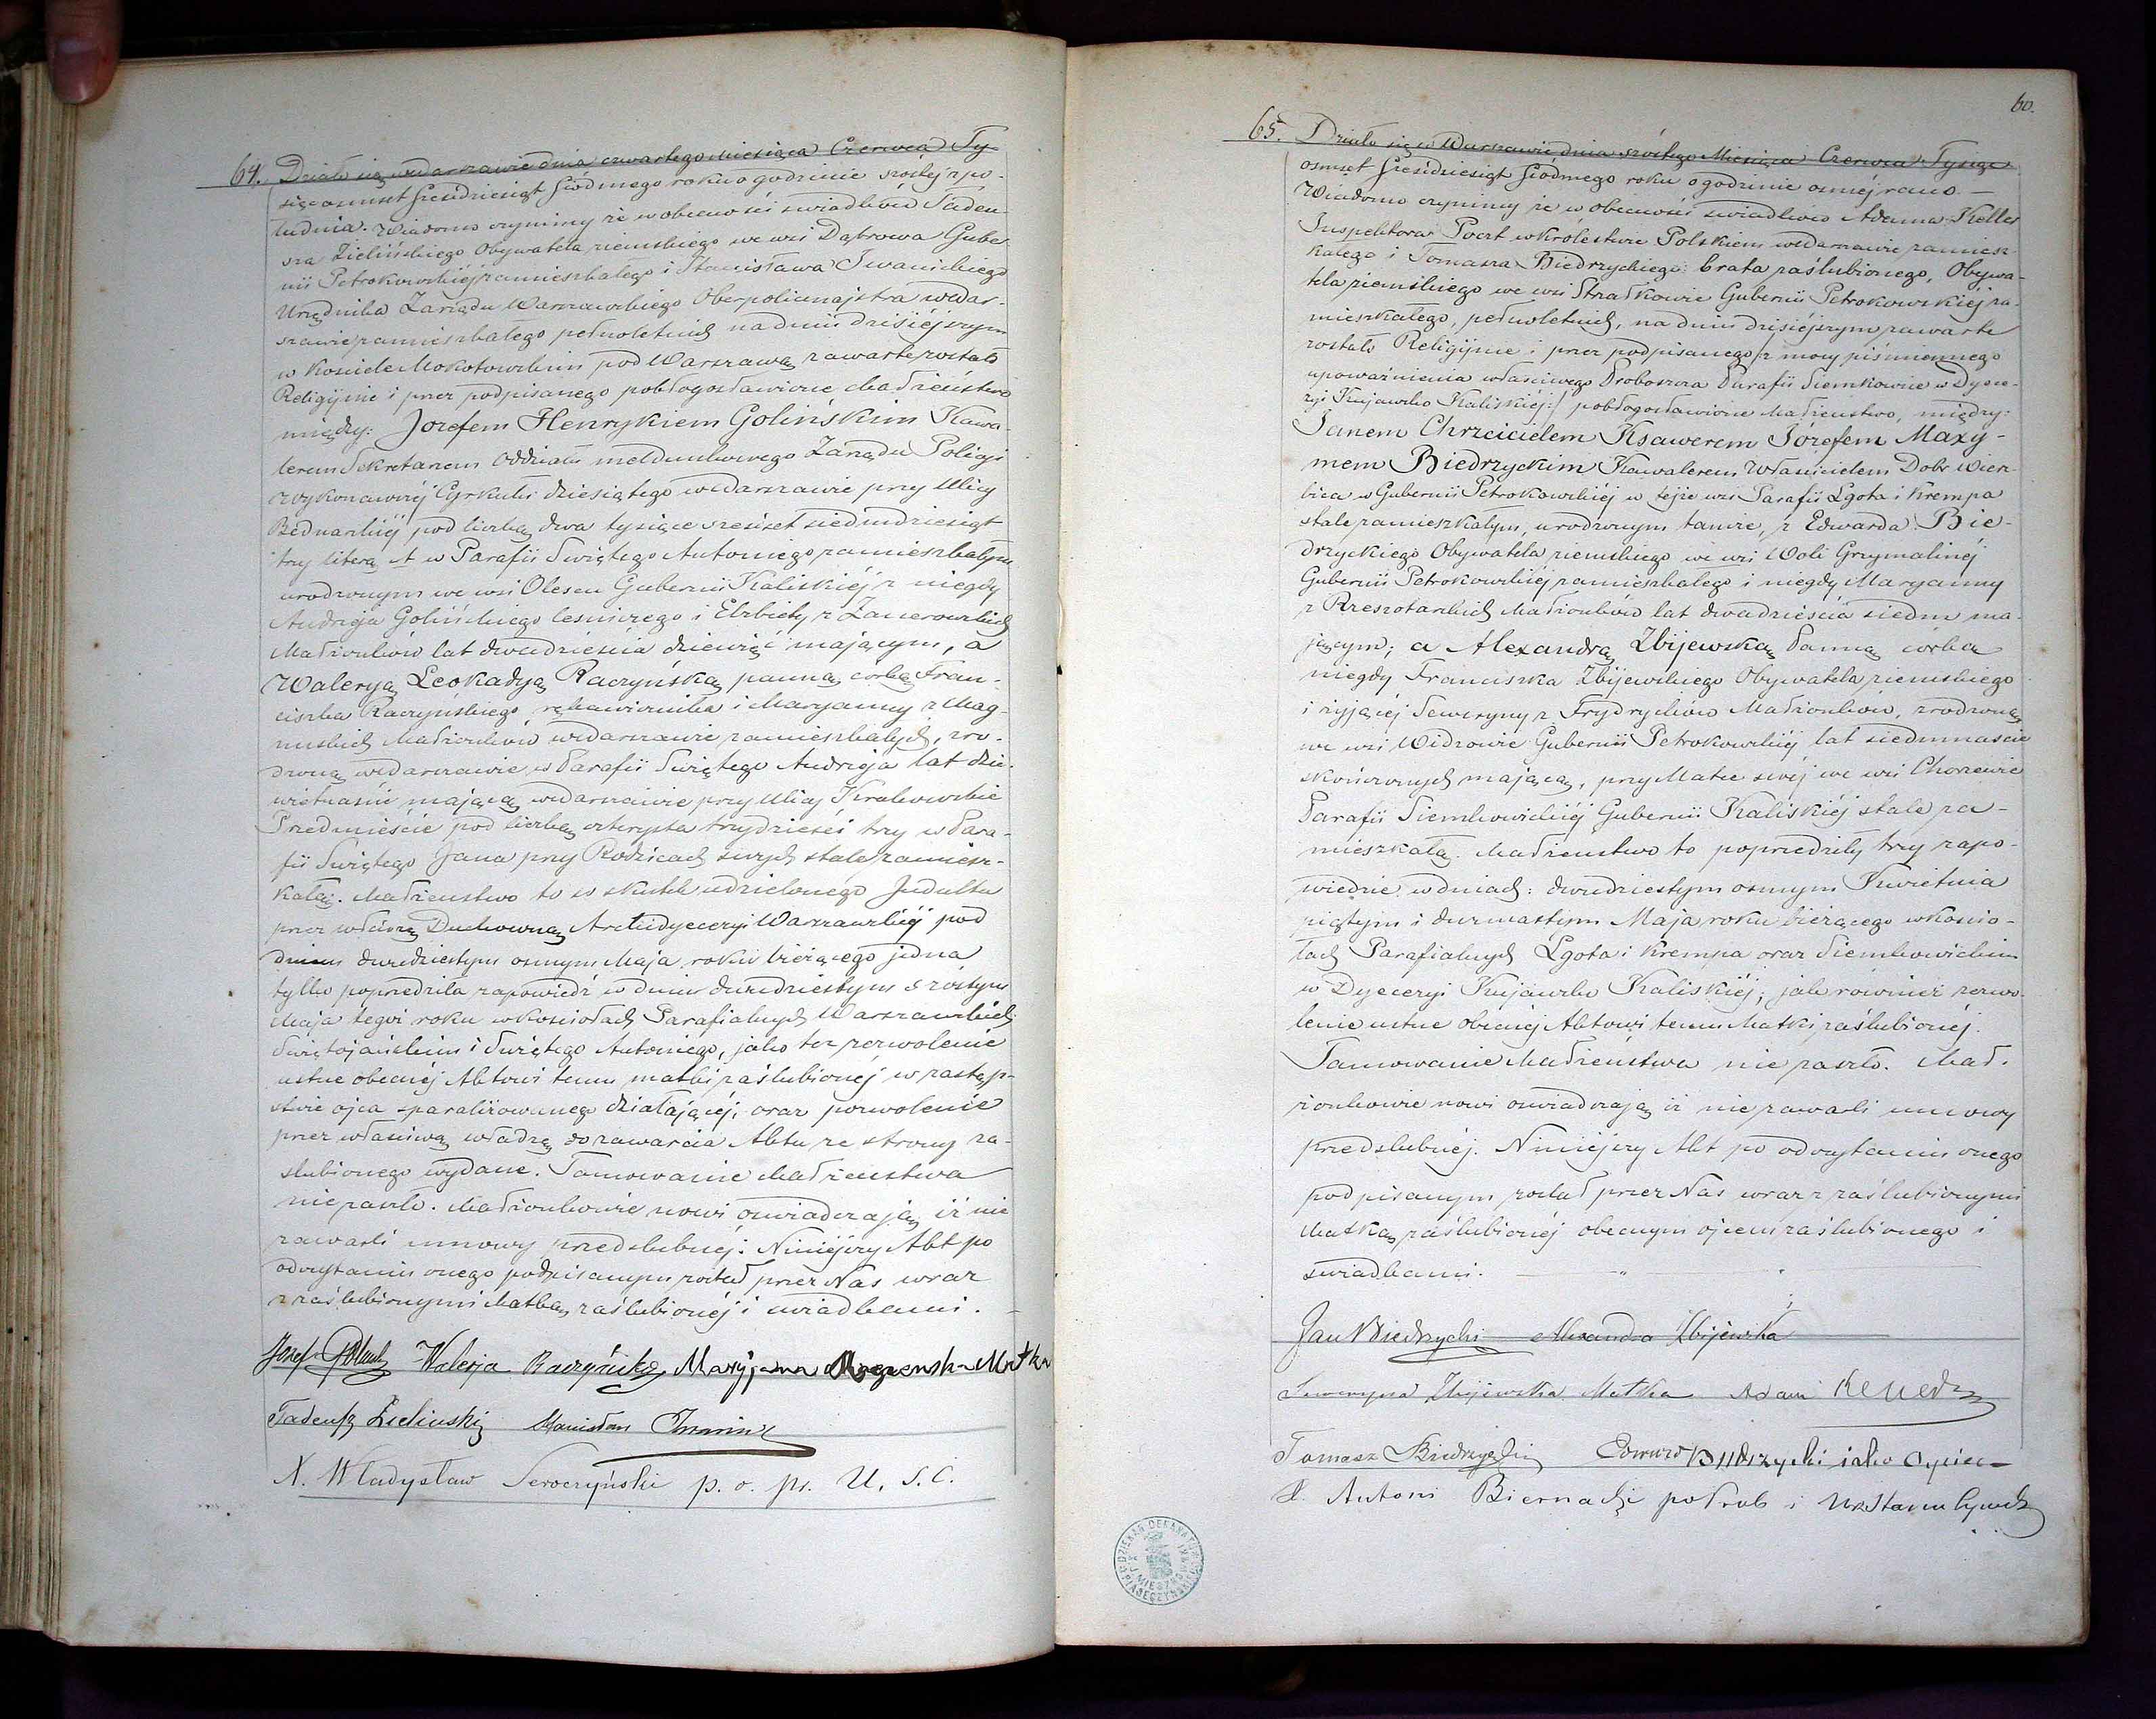 64. Działo się w Warszawie dnia czwartego miesiąca Czerwca Ty-
siąc osmset sześćdziesiąt siódmego roku o godzinie szóstej z po-
łudnia. Wiadomo czynimy że w obecności świadków Tadeu-
sza Zielińskiego Obywatela ziemskiego we wsi Dąbrowa Guber
nii Petrokowskiéj zamieszkałego i Stanisława Iwanickiego
Urzędnika Zarządu Warszawskiego Oberpolicmajstra w War-
szawie zamieszkałego pełnoletnich na dniu dzisiéjszym
w Kościele Mokotowskim pod Warszawą zawarte zostało
Religijnie i przez podpisanego pobłogosławione Małżeństwo
między: Jozefem Henrykiem Golińskim Kawa-
lerem Sekretarzem Oddziału meldunkowego Zarządu Policyi
wykonawczéj Cyrkułu dziesiątego w Warszawie przy Ulicy
Bednarskiéj pod liczbą dwa tysiące sześćset siedmdziesiąt
trzy literą A w Parafii Świętego Antoniego zamieszkałym
urodzonym we wsi Gubernii Kaliskiéj z niegdy
Andrzeja Golińskiego leśniczego i Elżbiety z
Małżonków lat dwadzieścia dziewięć mającym, a
Waleryą Leokadyą Raczyńską panną, córką Fran-
ciszka Raczyńskiego rękawicznika i Maryanny z Mag-
nuskich Małżonków w Warszawie zamieszkałych, uro-
dzoną w Warszawie w Parafii Świętego Andrzeja lat dzie-
więtnaście mającą w Warszawie przy Ulicy Krakowskie
Przedmieście pod liczbą czterysta trzydzieści trzy w Para-
fii Świętego Jana przy Rodzicach swych stale zamiesz-
kałą. Małżeństwo to w skutek udzielonego Indultu
przez władzę Duchowną Archidyecezyi Warszawskiéj pod
dniem dwudziestym osmym Maja roku bieżącego jedna
tylko poprzedziła zapowiedź w dniu dwudziestym szóstym
Maja tegoż roku w kościołach Parafialnych Warszawskich
Świętojańskim i Świętego Antoniego, jako też zezwolenie
ustne obecnéj Aktowi temu matki zaślubionéj w zastęp-
stwie ojca sparaliżowanego działającéj, oraz pozwolenie
przez właściwą władzę do zawarcia Aktu ze strony za-
ślubionego wydane. Tamowanie Małżeństwa
nie zaszło. Małżonkowie nowi oświadczają iż nie
zawarli umowy przedślubnéj. Niniejszy Akt po
odczytaniu onego podpisanym został przez Nas wraz
z zaślubionymi Matką zaślubionéj i świadkami.
Walerja Raczyńska Maryjanna Matka
Tadeusz Zieliński Stanisław
X. Władysław Seroczyński p. o. pr. U. S. C.
60.
65. Działo się w Warszawie dnia szóstego Miesiąca Czerwca Tysiąc
osmset sześćdziesiąt siódmego roku o godzinie osméj rano —
Wiadomo czynimy że w obecności świadków Adama Keller
Inspektora Poczt w Królestwie Polskiem w Warszawie zamiesz-
kałego i Tomasza Biedrzyckiego brata zaślubionego, Obywa-
tela ziemskiego we wsi Strzałkowie Gubernii Petrokowskiéj za-
mieszkałego, pełnoletnich, na dniu dzisiéjszym zawarte
zostało Religijnie i przez podpisanego /z mocy piśmiennego
upoważnienia właściwego Proboszcza Parafii Siemkowice w Dyece-
zyi Kujawsko Kaliskiéj:/ pobłogosławione Małżeństwo, między:
Janem Chrzcicielem Ksawerem Józefem Maxy-
mem Biedrzyckim Kawalerem Właścicielem Dóbr Wierz-
bica w Gubernii Petrokowskiéj w tejże wsi Parafii Lgota i Krempa
stale zamieszkałym, urodzonym tamże, z Edwarda Bie-
drzyckiego Obywatela ziemskiego we wsi Woli Grzymalinéj
Gubernii Petrokowskiéj zamieszkałego i niegdy Maryanny
z Rzeszotarskich Małżonków lat dwadzieścia siedm ma-
jącym; a Alexandrą Zbijewską Panną córką
niegdy Franciszka Zbijewskiego Obywatela ziemskiego
i żyjącéj Seweryny z Frydrychów Małżonków, zrodzoną
we wsi Widzowie Gubernii Petrokowskiéj lat siedmnaście
skończonych mającą, przy Matce swéj we wsi Chorzewie
Parafii Siemkowickiéj Gubernii Kaliskiéj stale za-
mieszkałą. Małżeństwo to poprzedziły trzy zapo-
wiedzie w dniach: dwudziestym osmym Kwietnia
piątym i dwunastym Maja roku bieżącego w Kościo-
łach Parafialnych Lgota i Krempa oraz Siemkowickim
w Dyecezyi Kujawsko Kaliskiéj; jako również zezwo-
lenie ustne obecnéj Aktowi temu Matki zaślubionéj.
Tamowanie Małżeństwa nie zaszło. Mał-
żonkowie nowi oświadczają iż nie zawarli umowy
przedślubnéj. Niniéjszy Akt po odczytaniu onego
podpisanym został przez Nas wraz z zaślubionymi
Matką zaślubionéj obecnym ojcem zaślubionego i
świadkami.
Jan Biedrzycki Alexandra Zbijewska
Seweryna Zbijewska Matka Adam Keller
Tomasz Biedrzycki Edward Biedrzycki jako Ojciec
X. Antoni Biernacki
DZIEKAN DEKANATU